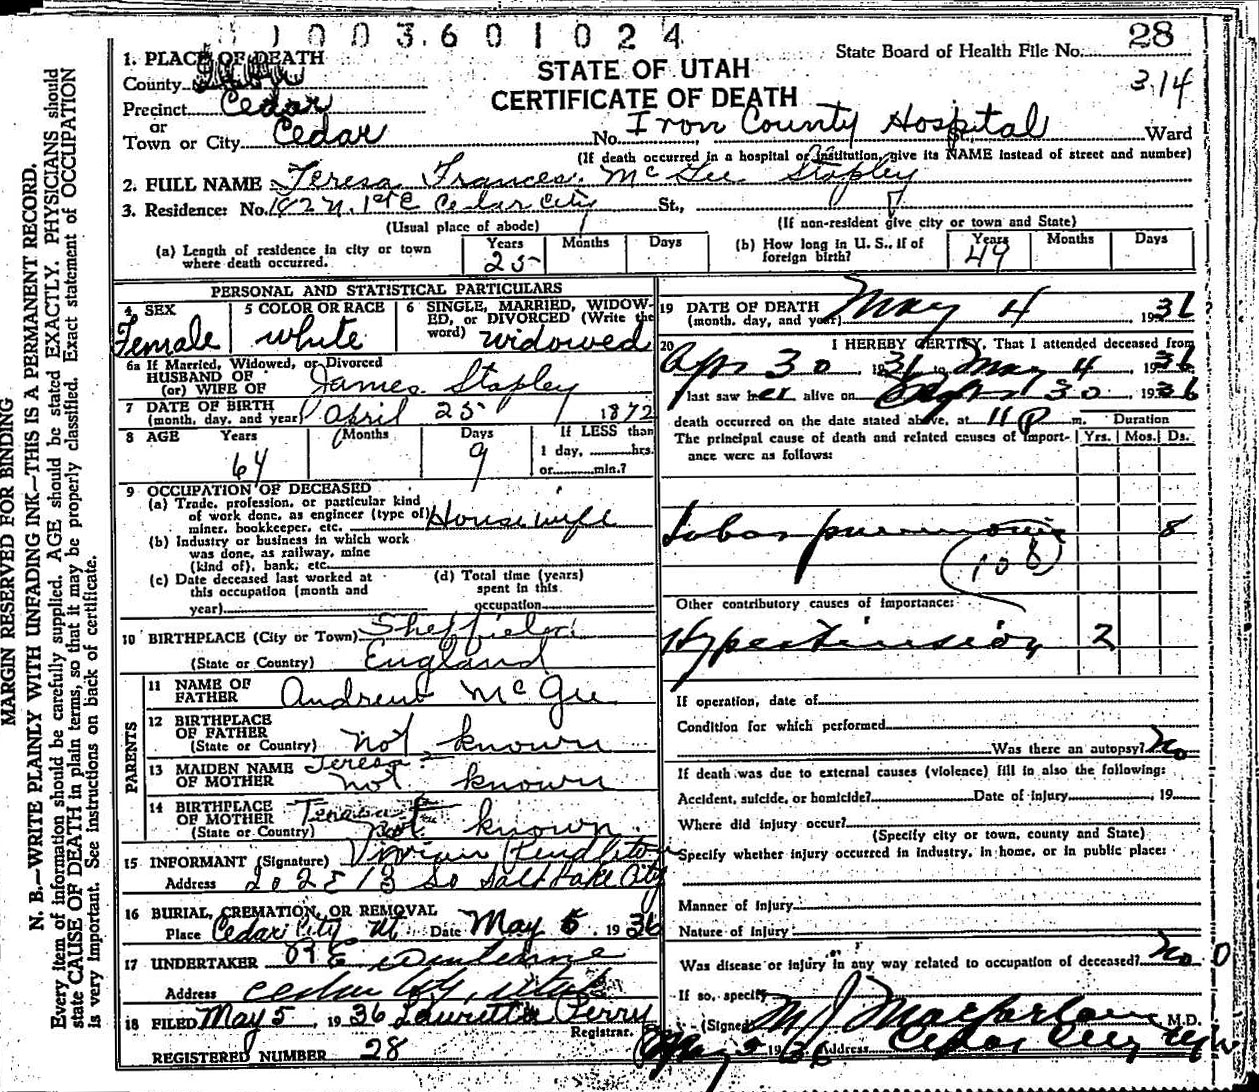 1003601024
State Board of Health File No. 28
314
1. PLACE OF DEATH
County
STATE OF UTAH
Precinct Cedar
CERTIFICATE OF DEATH
or
Town or City Cedar No. Iron County Hospital Ward
(If death occurred in a hospital or institution, give its NAME instead of street and number)
2. FULL NAME Teresa Frances McGee Stapley
3. Residence: No. 182 N. 1st E Cedar City St.,
(Usual place of abode) (If non-resident give city or town and State)
(a) Length of residence in city or town where death occurred. Years 25 Months Days
(b) How long in U. S., if of foreign birth? Years 49 Months Days
PERSONAL AND STATISTICAL PARTICULARS
4 SEX Female
5 COLOR OR RACE white
6 SINGLE, MARRIED, WIDOWED, OR DIVORCED (Write the word) widowed
6a If Married, Widowed, or Divorced
HUSBAND OF
(or) WIFE OF James Stapley
7 DATE OF BIRTH
(month, day, and year) April 25 1872
8 AGE Years 64 Months Days 9 If LESS than
1 day, hrs.
or min.?
9 OCCUPATION OF DECEASED
(a) Trade, profession, or particular kind
of work done, as engineer (type of)
miner, bookkeeper, etc. Housewife
(b) Industry or business in which work
was done, as railway, mine
(kind of), bank, etc.
(c) Date deceased last worked at
this occupation (month and
year)
(d) Total time (years)
spent in this
occupation
10 BIRTHPLACE (City or Town) Sheffield
(State or Country) England
PARENTS
11 NAME OF
FATHER Andrew McGee
12 BIRTHPLACE
OF FATHER
(State or Country) not known
13 MAIDEN NAME
OF MOTHER Teresa
not known
14 BIRTHPLACE
OF MOTHER
(State or Country) not known
15 INFORMANT (Signature) Vivian Pendleton
Address 202 E 13 So Salt Lake City
16 BURIAL, CREMATION, OR REMOVAL
Place Cedar City Ut Date May 5, 1936
17 UNDERTAKER
Address Cedar City, Utah
18 FILED May 5, 1936 Lauretta Perry
Registrar.
REGISTERED NUMBER 28
19 DATE OF DEATH
(month, day, and year) May 4 1936
20 I HEREBY CERTIFY, That I attended deceased from
Apr 30 1936 to May 4 1936
last saw her alive on 30 1936
death occurred on the date stated above, at 11 P m.
Duration
The principal cause of death and related causes of import-
ance were as follows: Yrs. Mos. Ds.
Lobar pneumonia 8
(108)
Other contributory causes of importance:
Hypertension 2
If operation, date of
Condition for which performed
Was there an autopsy? No
If death was due to external causes (violence) fill in also the following:
Accident, suicide, or homicide? Date of injury , 19
Where did injury occur?
(Specify city or town, county and State)
Specify whether injury occurred in industry, in home, or in public place:
Manner of injury
Nature of injury
Was disease or injury in any way related to occupation of deceased? No
If so, specify
(Signed) M J Macfarlane M.D.
May 5 1936 Address Cedar City Utah
MARGIN RESERVED FOR BINDING
N. B.—WRITE PLAINLY WITH UNFADING INK—THIS IS A PERMANENT RECORD.
Every item of information should be carefully supplied. AGE should be stated EXACTLY. PHYSICIANS should
state CAUSE OF DEATH in plain terms, so that it may be properly classified. Exact statement of OCCUPATION
is very important. See instructions on back of certificate.